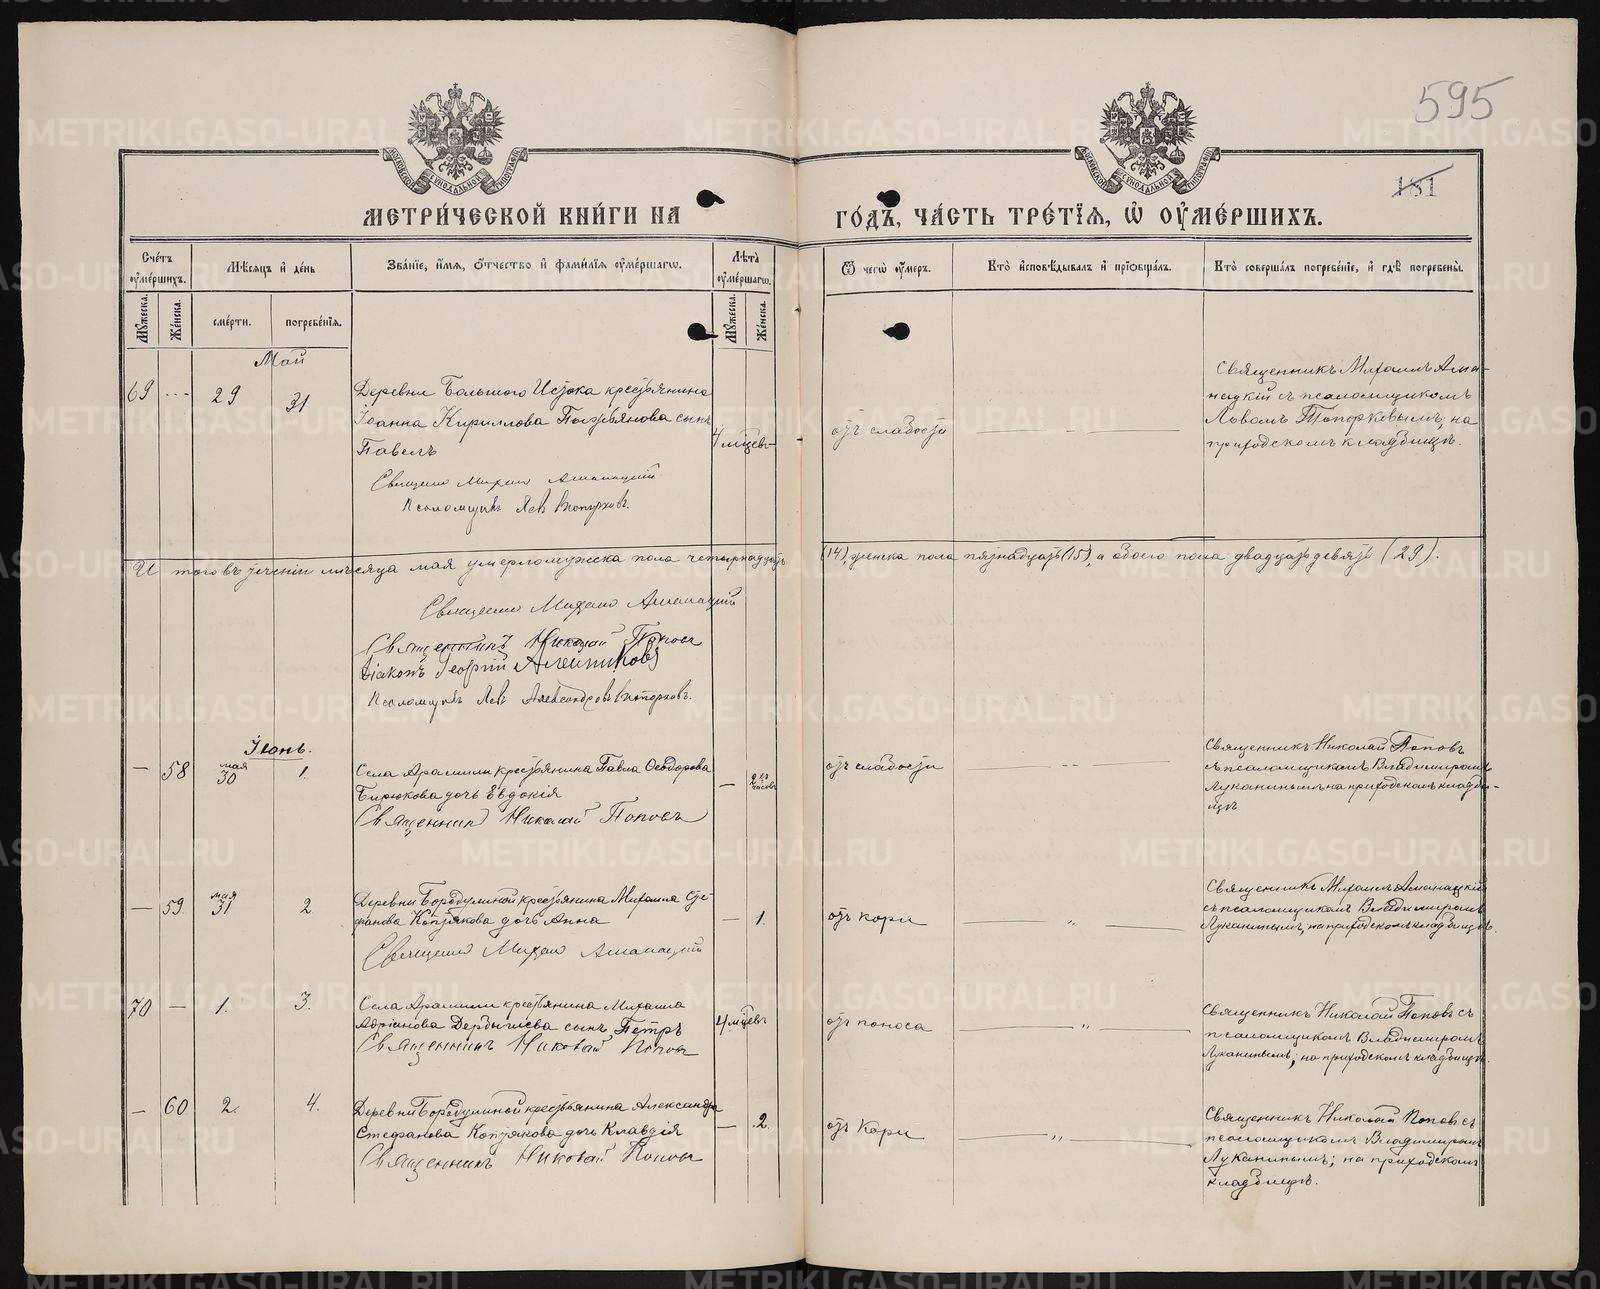 595
181
МЕТРИ́ЧЕСКОЙ КНИ́ГИ НА ГО́ДЪ, ЧА́СТЬ ТРЕ́ТІѦ, Ѡ҆ ОУ҆МЕ́РШИХЪ.
Сче́тъ оу҆ме́ршихъ.
Мꙋ́жеска.
Же́нска.
Мѣ́сѧцъ и҆ де́нь
сме́рти.
погребе́нїѧ.
Зва́нїе, и҆́мѧ, ѻ҆́тчество и҆ фами́лїѧ оу҆ме́ршагѡ.
Лѣ́та оу҆ме́ршагѡ.
Мꙋ́жеска.
Же́нска.
Ѿ чегѡ̀ оу҆́меръ.
Кто̀ и҆сповѣ́дывалъ и҆ прїѡбща́лъ.
Кто̀ соверша́лъ погребе́нїе, и҆ гдѣ̀ погребены̀.
Май
69 29 31
Деревни Большого Истока крестьянина
Іоанна Кириллова сынъ
Павелъ
4 мѣсевъ
отъ слабости
Священникъ Михаилъ Ама-
нацкій съ псаломщикомъ
Львомъ Топорковымъ, на
приходскомъ кладбищѣ.
Священн Михаил Аманацкій
Псаломщикъ Левъ Топорковъ.
И того въ теченіи мѣсяца мая умерло мужска пола четырнадцать (14), женска пола пятнадцать (15), а обоего пола двадцать девять (29).
Священн Михаил Аманацкій
Священникъ Николай Поповъ
Діаконъ Георгій
Псаломщикъ Левъ Александровъ Топорковъ.
Іюнь.
— 58 мая 30 1.
Села Арамили крестьянина Павла Ѳеодорова
Бирюкова дочь Евдокія
Священник Николай Поповъ
— 2 часовъ
отъ слабости
Священникъ Николай Поповъ
съ псаломщикомъ Владиміромъ
Луканинымъ на приходскомъ кладби-
щѣ
— 59. мая 31 2
Деревни Бородулиной крестьянина Михаила Сте-
фанова Коптякова дочь Анна
Священн Михаил Аманацкій
— 1.
отъ кори
Священникъ Михаилъ Аманацкій
съ псаломщикомъ Владиміромъ
Луканинымъ, на приходскомъ кладбищѣ.
70 — 1. 3.
Села Арамили крестьянина Михаила
Адріанова Дербышева сынъ Петръ
Священникъ Николай Поповъ
4 мѣсевъ
отъ поноса
Священникъ Николай Поповъ съ
псаломщикомъ Владиміромъ
Луканинымъ; на приходскомъ кладбищѣ.
— 60 2. 4.
Деревни Бородулиной крестьянина Александра
Стефанова Коптякова дочь Клавдія
Священникъ Николай Поповъ
— 2.
отъ Кори
Священникъ Николай Поповъ съ
псаломщикомъ Владиміромъ
Луканинымъ; на приходскомъ
кладбищѣ.
METRIKI.GASO-URAL.RU